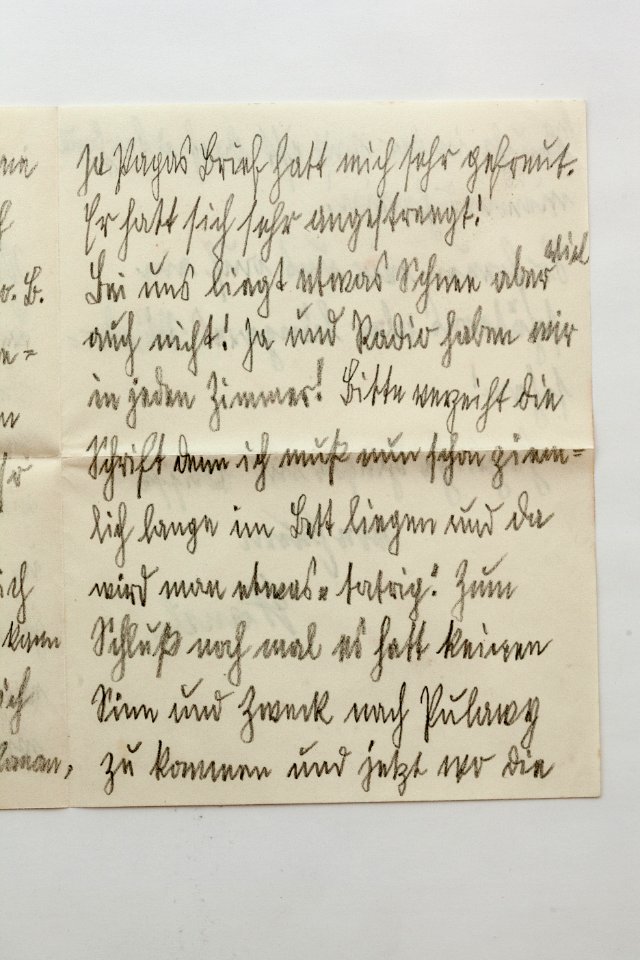 ne
Ja Papas Brief hatt mich sehr gefreut.
Er hatt sich sehr angestrengt!
viel
o. B.
Bei uns liegt etwas Schnee aber
auch nicht! Ja und Radio haben wir
e=
in jeden Zimmer! Bitte verzeiht die
n
Schrift denn ich muß nun schon ziem=
lich lange im Bett liegen und da
ich
wird man etwas „tatrig“. Zum
kann
Schluß noch mal es hatt keinen
ich
Sinn und Zweck nach Pulawy
zu kommen und jetzt wo die